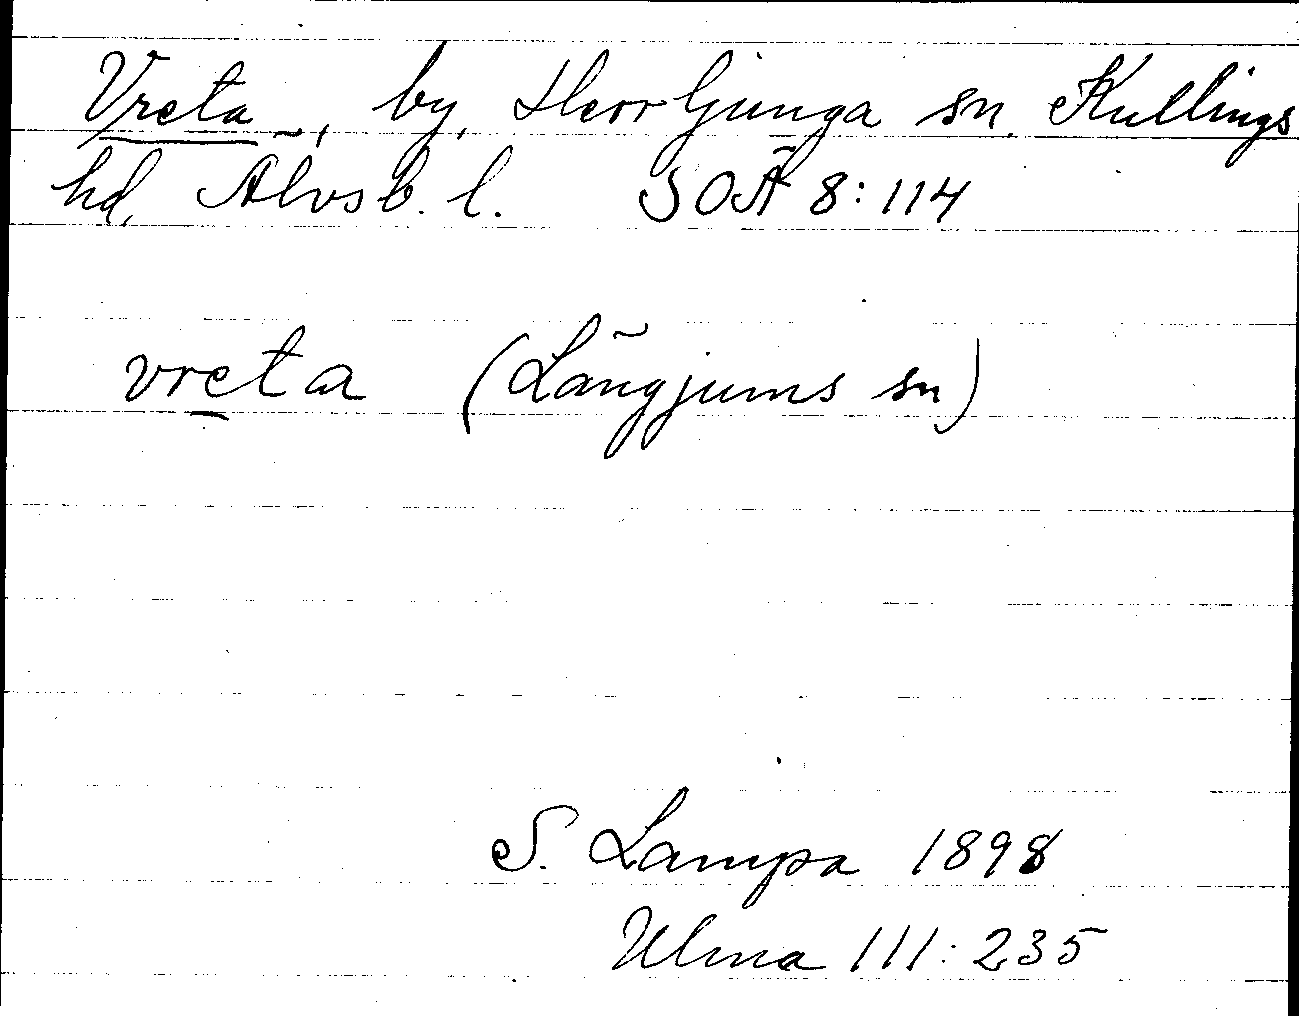 Vreta, by, Herrljunga sn. Kullings
hd, Älvsb. l. SOÄ 8:114
vreta (Längjums sn)
S. Lampa 1898
Ulma 111:235